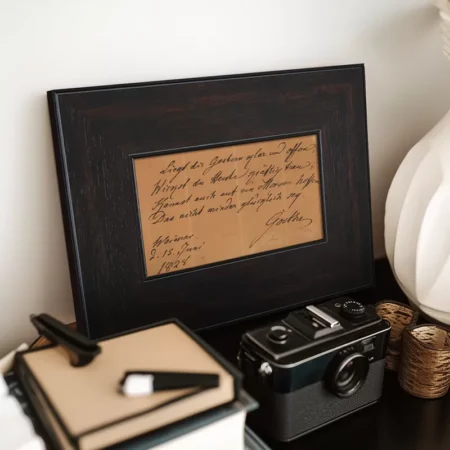 Liegt dir Gestern klar und offen,
Wirckst du Heute kräftig frey;
Kannst auch auf ein Morgen hoffen
Das nicht minder glücklich sey
Goethe
Weimar
d. 15. Juni